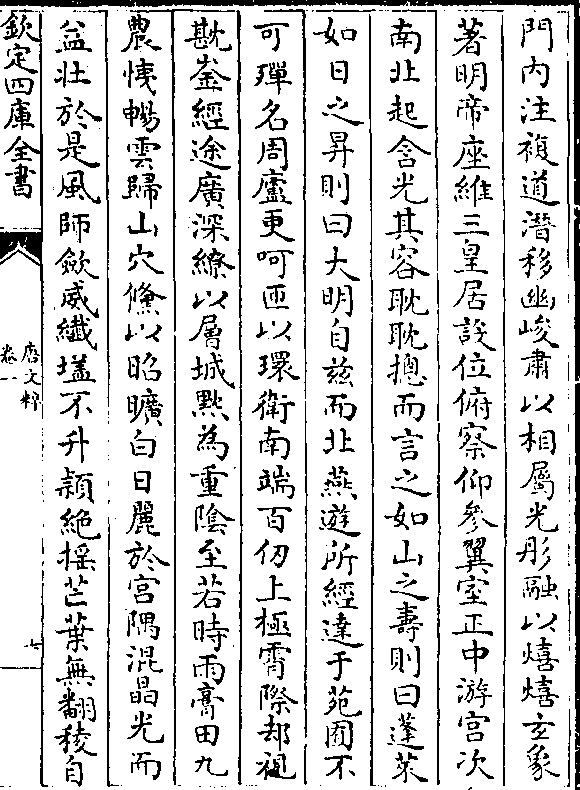 門内注複道潛移幽峻肅以相屬光彤融以熺熺玄象
著明帝座維三皇居設位俯察仰參翼室正中游宮次
南北起含光其容耽耽揔而言之如山之壽則曰蓬萊
如日之昇則曰大明自兹而北燕遊所經達于苑囿不
可殫名周廬更呵匝以環衛南端百仞上極霄際却視
嵌崟經途廣深繚以層城黙為重陰至若時雨膏田九
農悅暢雲歸山穴倐以昭曠白日麗於宫隅混晶光而
益壯於是風師斂威纎壒不升頴絶揺芒葉無翻稜自
欽定四庫全書
唐文粹
卷一
七